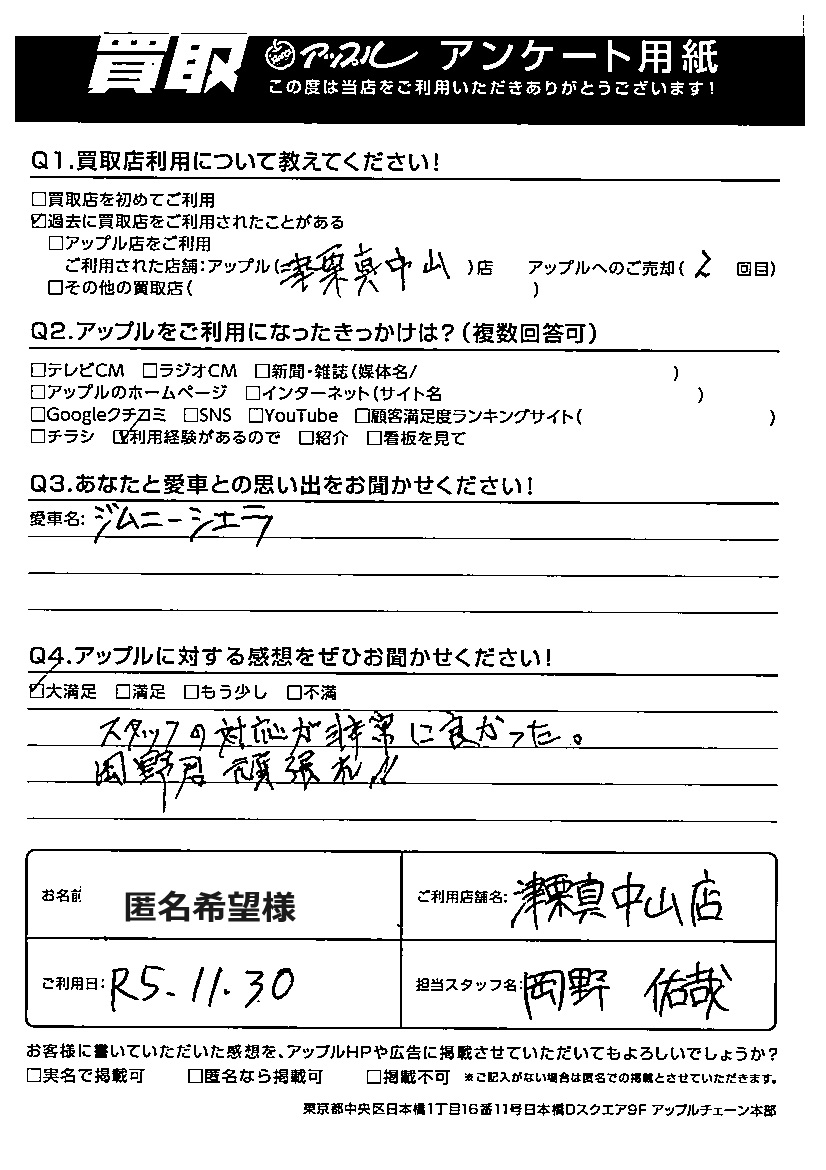 買取 アップル アンケート用紙
この度は当店をご利用いただきありがとうございます!
Q1.買取店利用について教えてください!
□買取店を初めてご利用
☑過去に買取店をご利用されたことがある
□アップル店をご利用
ご利用された店舗:アップル(津栗真中山)店 アップルへのご売却(2 回目)
□その他の買取店( )
Q2.アップルをご利用になったきっかけは?(複数回答可)
□テレビCM □ラジオCM □新聞・雑誌(媒体名/ )
□アップルのホームページ □インターネット(サイト名 )
□Googleクチコミ □SNS □YouTube □顧客満足度ランキングサイト( )
□チラシ ☑利用経験があるので □紹介 □看板を見て
Q3.あなたと愛車との思い出をお聞かせください!
愛車名:ジムニーシエラ
Q4.アップルに対する感想をぜひお聞かせください!
☑大満足 □満足 □もう少し □不満
スタッフの対応が非常に良かった。
岡野君頑張れ!!
お名前 匿名希望様
ご利用店舗名:津栗真中山店
ご利用日:R5.11.30
担当スタッフ名:岡野 佑哉
お客様に書いていただいた感想を、アップルHPや広告に掲載させていただいてもよろしいでしょうか?
□実名で掲載可 □匿名なら掲載可 □掲載不可 ※ご記入がない場合は匿名での掲載とさせていただきます。
東京都中央区日本橋1丁目16番11号日本橋Dスクエア9F アップルチェーン本部